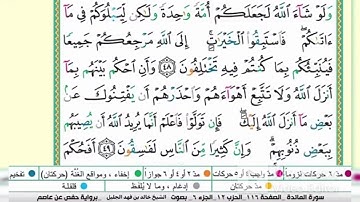 وَلَوْ شَآءَ ٱللَّهُ لَجَعَلَكُمْ أُمَّةً وَٰحِدَةً وَلَٰكِن لِّيَبْلُوَكُمْ فِى مَآ
ءَاتَىٰكُمْ ۖ فَٱسْتَبِقُوا۟ ٱلْخَيْرَٰتِ ۚ إِلَى ٱللَّهِ مَرْجِعُكُمْ جَمِيعًا
فَيُنَبِّئُكُم بِمَا كُنتُمْ فِيهِ تَخْتَلِفُونَ ٤٨ وَأَنِ ٱحْكُم بَيْنَهُم بِمَآ
أَنزَلَ ٱللَّهُ وَلَا تَتَّبِعْ أَهْوَآءَهُمْ وَٱحْذَرْهُمْ أَن يَفْتِنُوكَ عَنۢ
بَعْضِ مَآ أَنزَلَ ٱللَّهُ إِلَيْكَ ۖ فَإِن تَوَلَّوْا۟ فَٱعْلَمْ أَنَّمَا يُرِيدُ ٱللَّهُ أَن يُصِيبَهُم
بِبَعْضِ ذُنُوبِهِمْ ۗ وَإِنَّ كَثِيرًا مِّنَ ٱلنَّاسِ لَفَٰسِقُونَ ٤٩ أَفَحُكْمَ
مد ٦ حركات لزوماً مد ٢ أو ٤ أو ٦ جوازاً إخفاء، ومواقع الغنّة (حركتان) تفخيم
مد حركتان إدغام، وما لا يلفظ قلقلة
سورة المائدة الصفحة ١١٦ الحزب ١٢ الجزء ٦ بصوت الشيخ خالد بن فهد الجليل برواية حفص عن عاصم